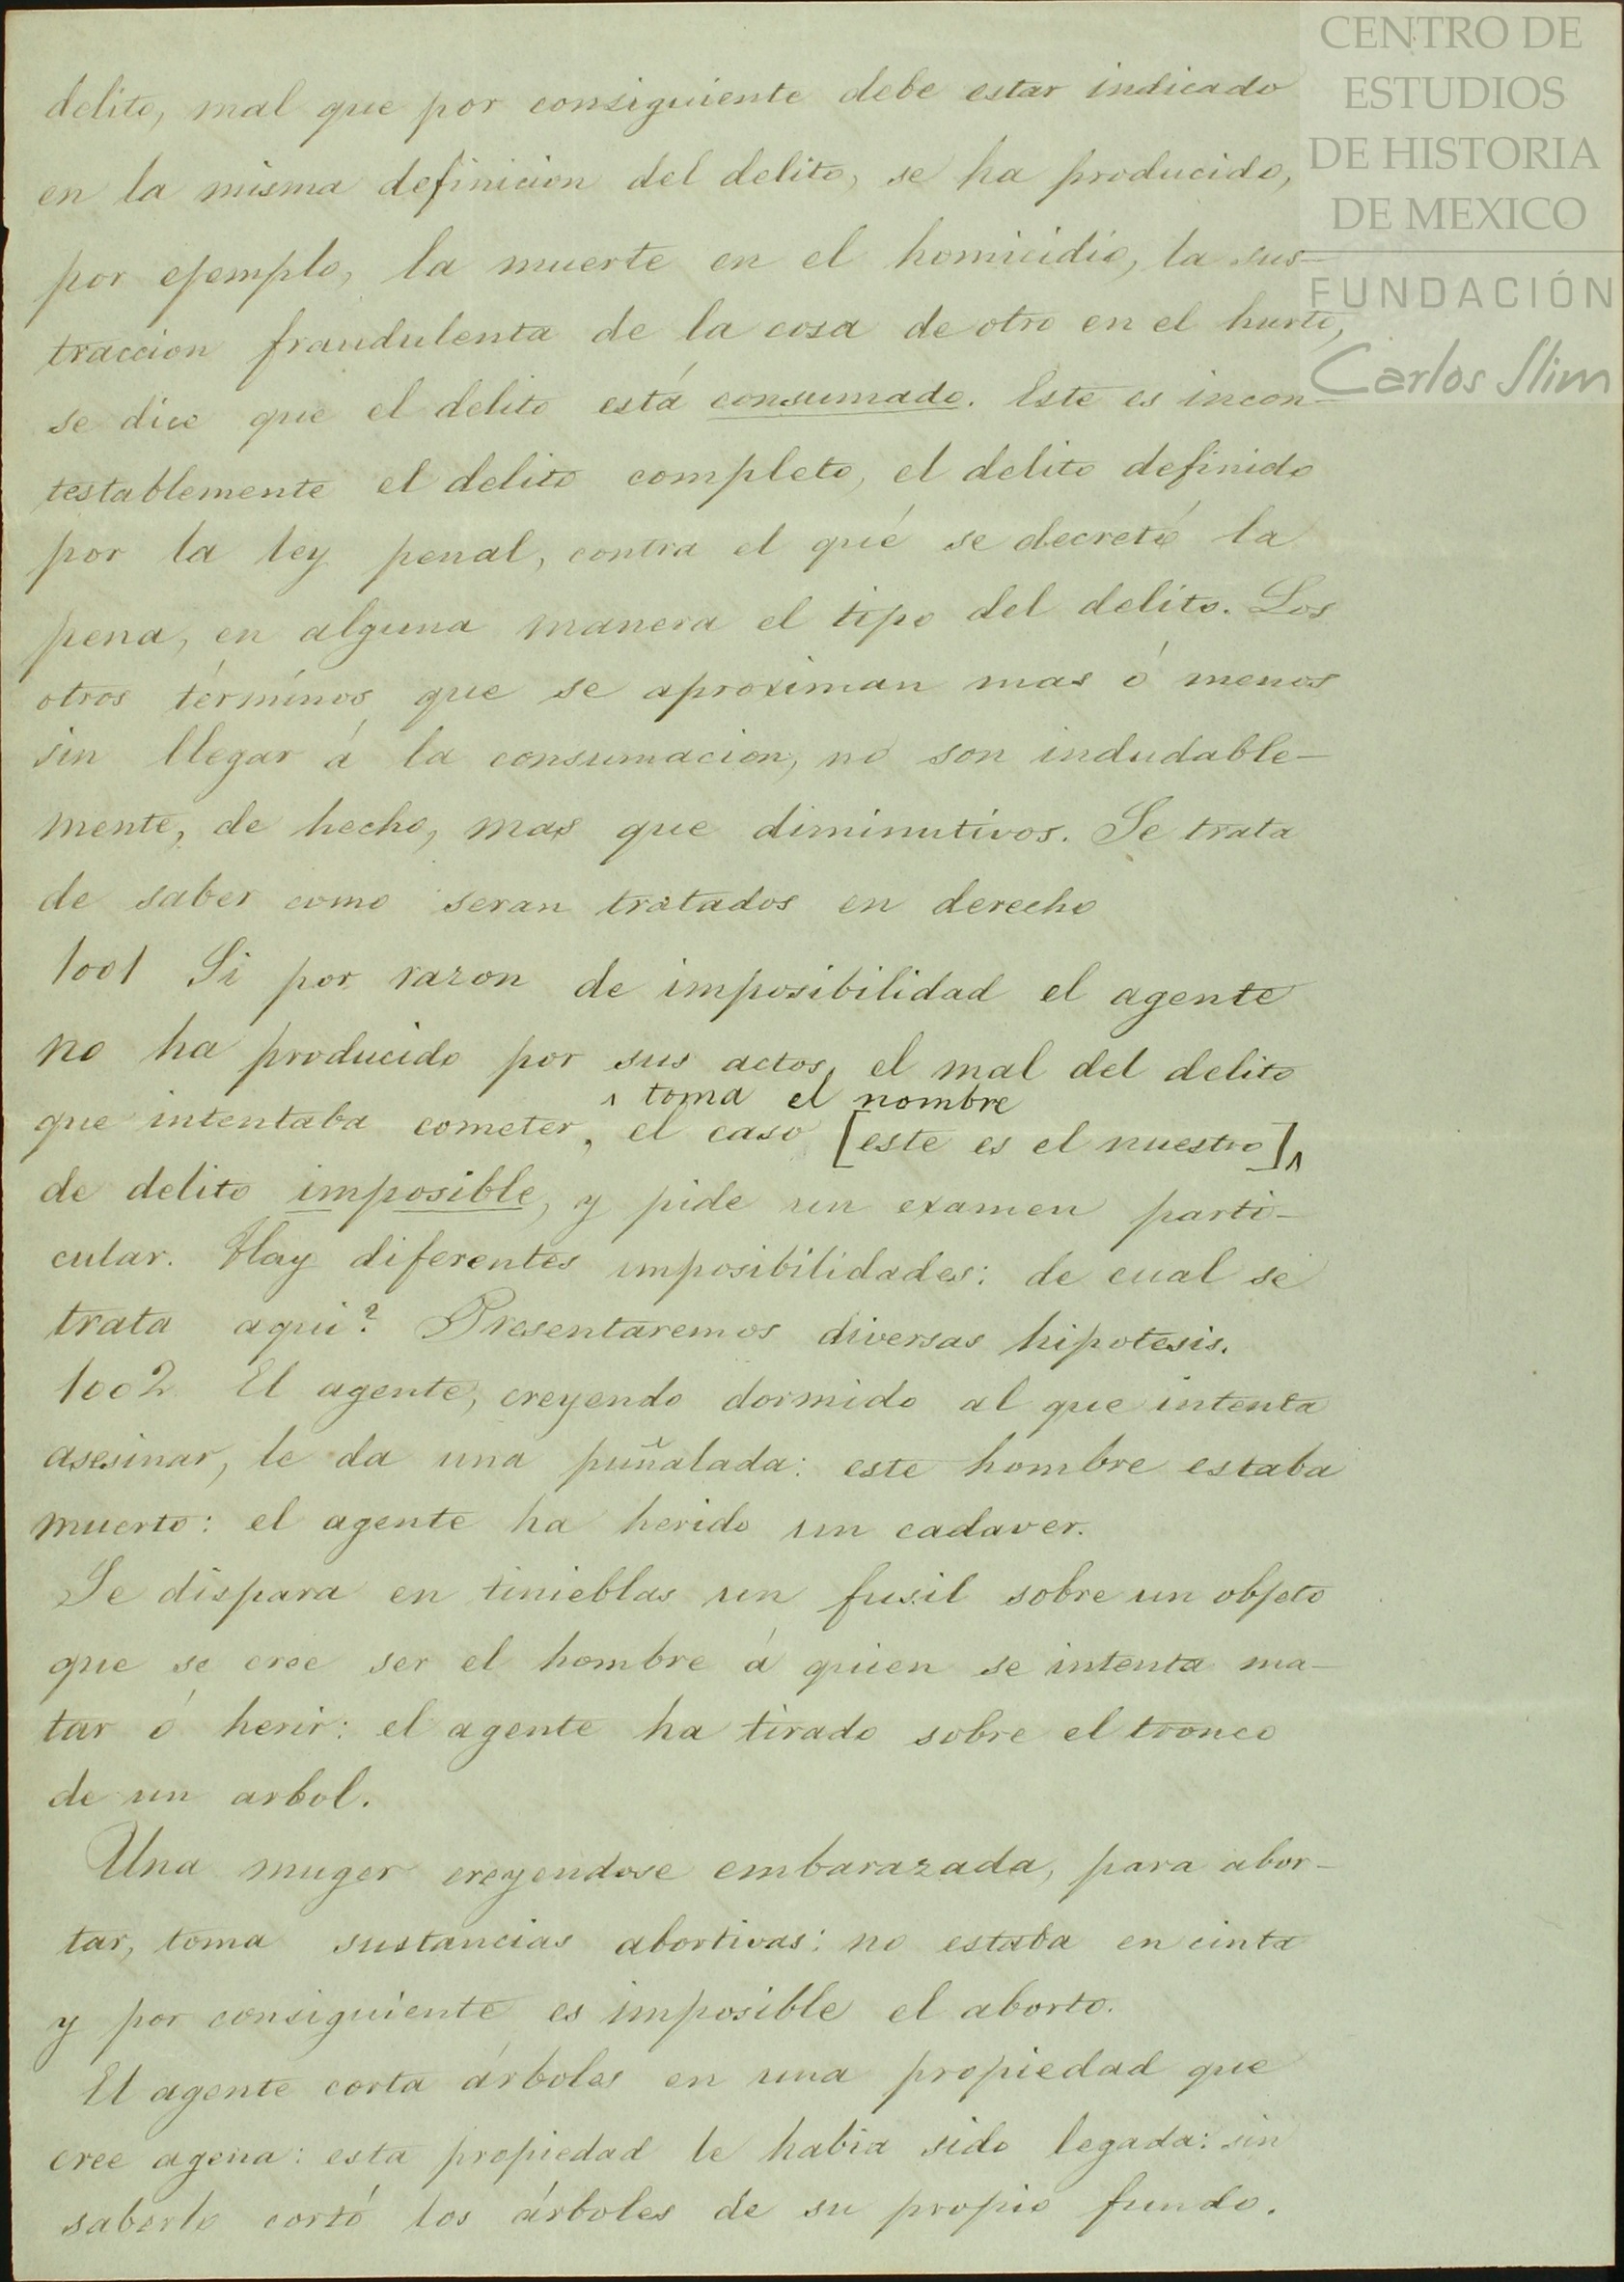 CENTRO DE
ESTUDIOS
DE HISTORIA
DE MEXICO
FUNDACIÓN
Carlos Slim
delito, mal que por consiguiente debe estar indicado
en la misma definicion del delito, se ha producido,
por ejemplo, la muerte en el homicidio, la sus-
traccion fraudulenta de la cosa de otro en el hurto,
se dice que el delito está consumado. Este es incon-
testablemente el delito completo, el delito definido
por la ley penal, contra el qué se decretó la
pena, en alguna manera el tipo del delito. Los
otros términos que se aproximan mas ó menos
sin llegar á la consumacion, no son indudable-
mente, de hecho, mas que diminutivos. Se trata
de saber como seran tratados en derecho
1001 Si por razon de imposibilidad el agente
no ha producido por sus actos, el mal del delito
^ toma el nombre
que intentaba cometer, el caso [este es el nuestro]^
de delito imposible, y pide un examen parti-
cular. Hay diferentes imposibilidades: de cual se
trata aqui? Presentaremos diversas hipotesis.
1002 El agente, creyendo dormido al que intenta
asesinar, le da una puñalada: este hombre estaba
muerto: el agente ha herido un cadaver.
Se dispara en tinieblas un fusil sobre un objeto
que se cree ser el hombre á quien se intenta ma-
tar ó herir: el agente ha tirado sobre el tronco
de un arbol.
Una muger creyendose embarazada, para abor-
tar, toma sustancias abortivas: no estaba en cinta
y por consiguiente es imposible el aborto.
El agente corta árboles en una propiedad que
cree agena: esta propiedad le habia sido legada: sin
saberlo cortó los árboles de su propio fundo.